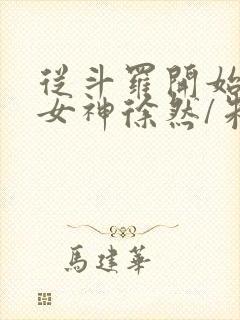 從斗羅開始
女神徐然/朱
馬建華